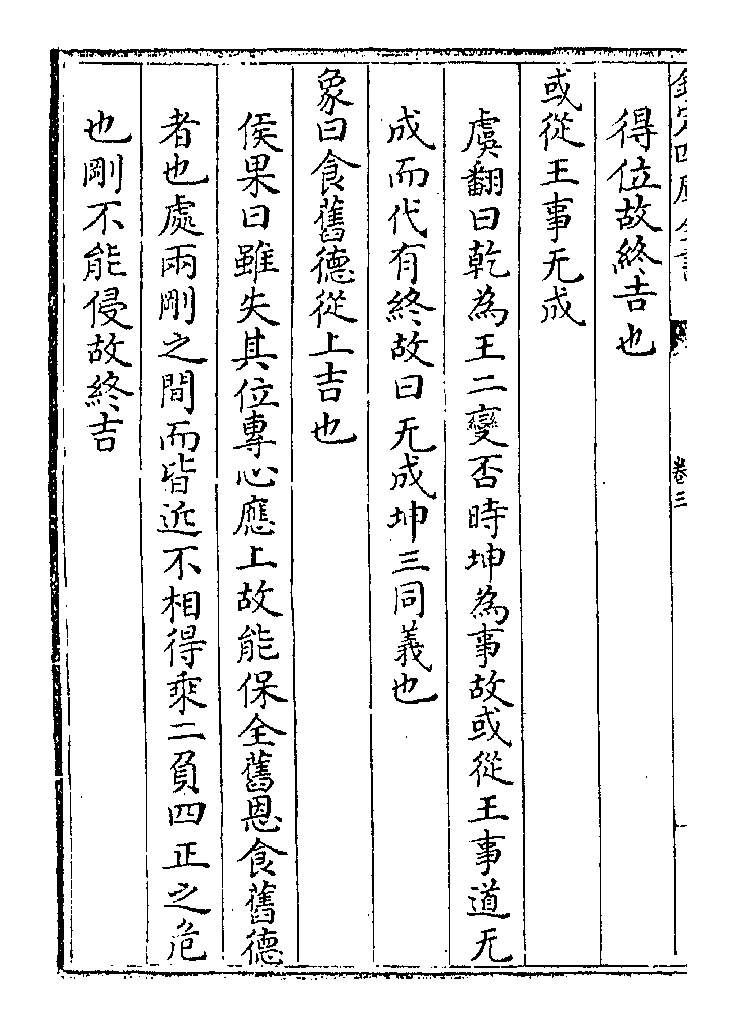 得位故終吉也
或從王事无成
虞翻曰乾為王二變否時坤為事故或從王事道无
成而代有終故曰无成坤三同義也
象曰食舊德從上吉也
侯果曰雖失其位專心應上故能保全舊恩食舊德
者也處兩剛之間而皆近不相得乘二負四正之危
也剛不能侵故終吉
卷三